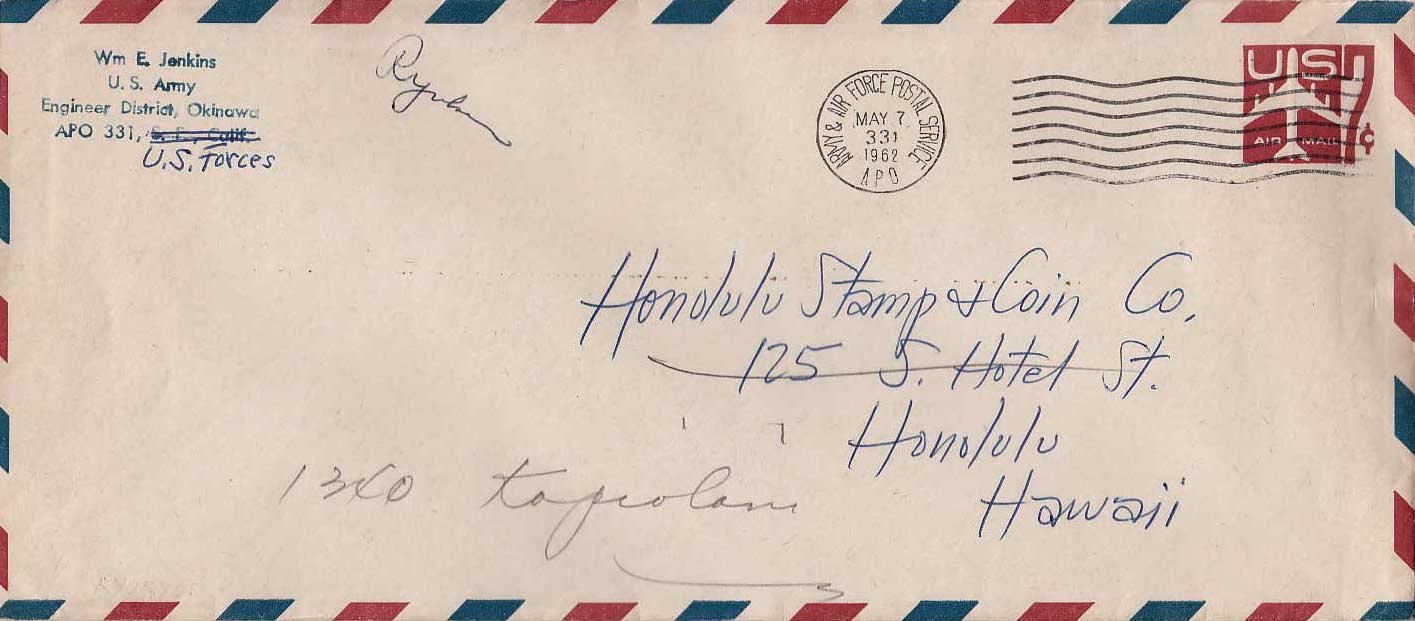 Wm E. Jenkins
U. S. Army
Engineer District, Okinawa
APO 331, S. F., Calif.
U.S. Forces
ARMY & AIR FORCE POSTAL SERVICE
MAY 7
331
1962
APO
US
7¢
AIR MAIL
Honolulu Stamp & Coin Co.
125 S. Hotel St.
Honolulu
Hawaii
1340 Kapiolani